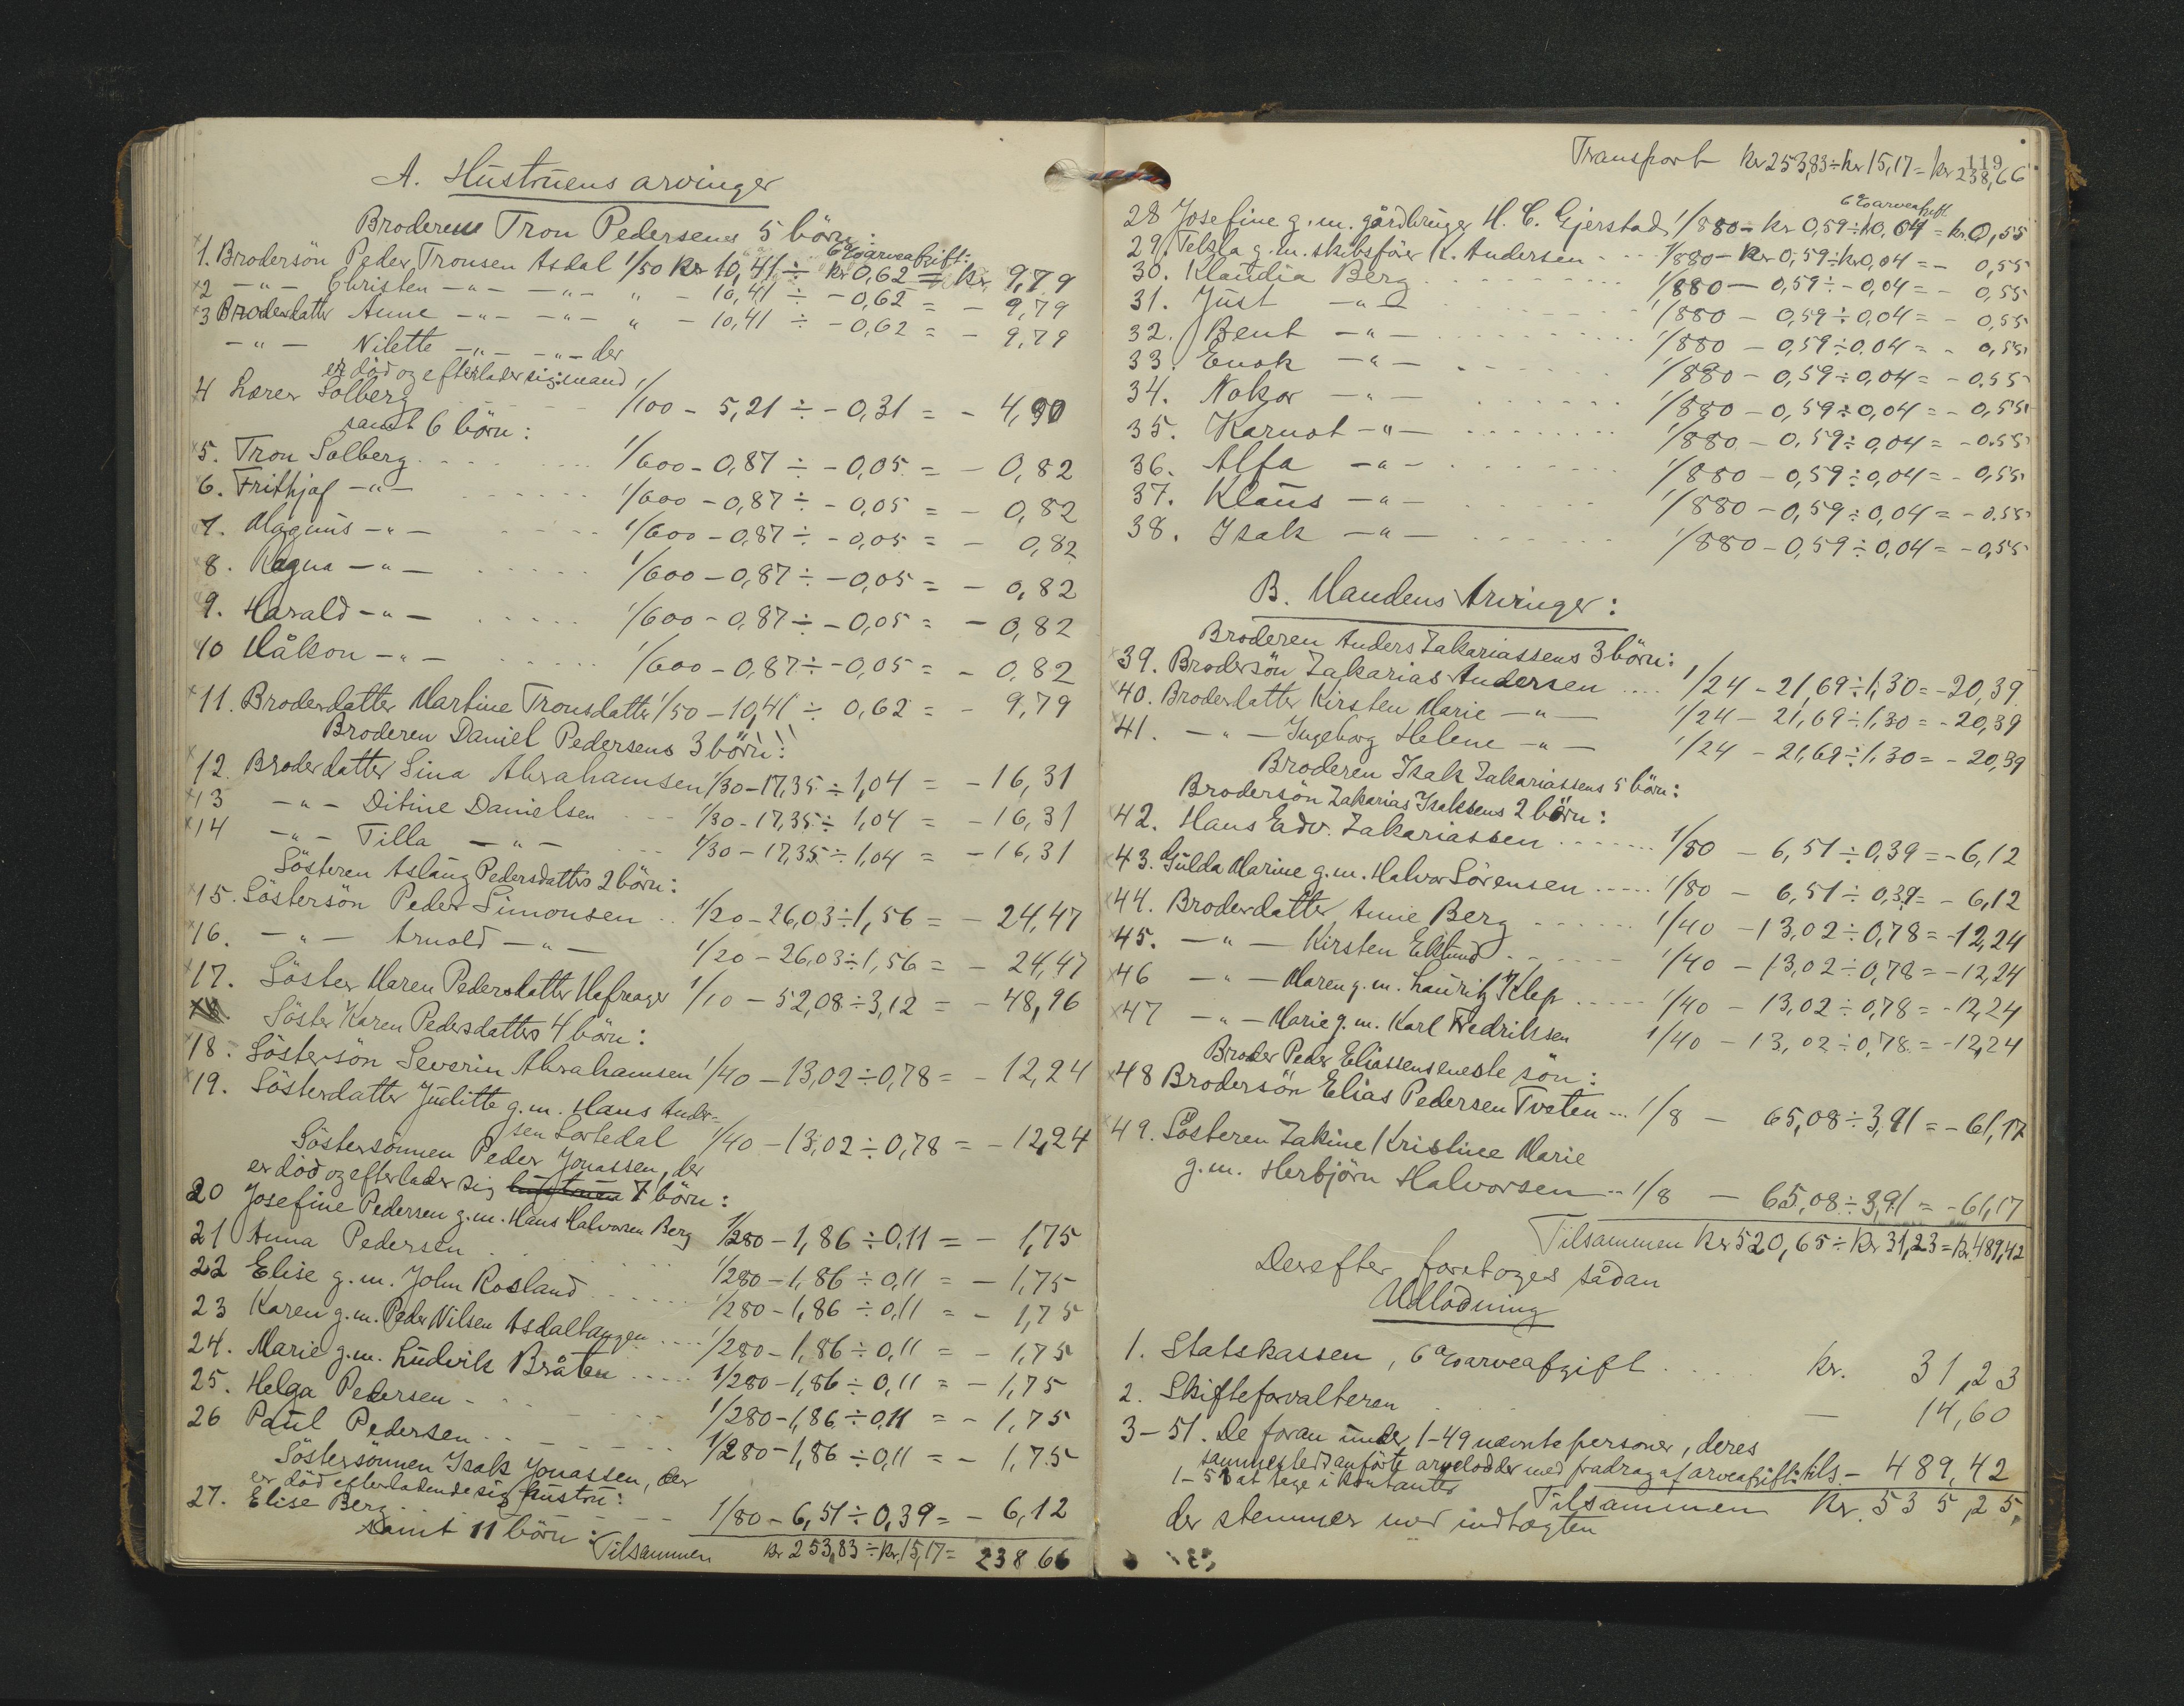 A. Hustruens arvinger
Broderens Tron Pedersens 5 börn:
6% arveafgift:
1. Brodersön Peder Tronsen Asdal 1/50 Kr 10,41 ÷ kr 0,62 = kr. 9,79
2 -"- Christen -"- -"- " - 10,41 ÷ - 0,62 = - 9,79
3 Broderdatter Anne -"- -"- " - 10,41 ÷ - 0,62 = - 9,79
-"- Nilette -"- -"- der
er död og efterlader sig: mand
4 Lærer Solberg 1/100 - 5,21 ÷ - 0,31 = - 4,90
samt 6 börn:
5. Tron Solberg 1/600 - 0,87 ÷ - 0,05 = - 0,82
6. Frithjof -"- 1/600 - 0,87 ÷ - 0,05 = - 0,82
7. Magnus -"- 1/600 - 0,87 ÷ - 0,05 = - 0,82
8. Ragna -"- 1/600 - 0,87 ÷ - 0,05 = - 0,82
9. Harald -"- 1/600 - 0,87 ÷ - 0,05 = - 0,82
10 Håkon -"- 1/600 - 0,87 ÷ - 0,05 = - 0,82
11. Broderdatter Martine Tronsdatter 1/50 - 10,41 ÷ 0,62 = - 9,79
Broderen Daniel Pedersens 3 börn:
12. Broderdatter Sina Abrahamsen 1/30 - 17,35 ÷ 1,04 = - 16,31
13 -"- Ditine Danielsen 1/30 - 17,35 ÷ 1,04 = - 16,31
14 -"- Tilla -"- 1/30 - 17,35 ÷ 1,04 = - 16,31
Søsteren Aslaug Pedersdatters 2 börn:
15. Söstersön Peder Simonsen 1/20 - 26,03 ÷ 1,56 = - 24,47
16. -"- Arnold -"- 1/20 - 26,03 ÷ 1,56 = - 24,47
17. Söster Maren Pedersdatter Hafreager 1/10 - 52,08 ÷ 3,12 = - 48,96
Söster Karen Pedersdatters 4 börn:
18. Söstersön Severin Abrahamsen 1/40 - 13,02 ÷ 0,78 = - 12,24
19. Sösterdatter Juditte g.m. Hans Ander-
sen Lortedal 1/40 - 13,02 ÷ 0,78 = - 12,24
Söstersönnen Peder Jonassen, der
er död og efterlader sig hustruen 7 börn:
20 Josefine Pedersen g.m. Hans Halvorsen Berg 1/280 - 1,86 ÷ 0,11 = - 1,75
21 Anna Pedersen 1/280 - 1,86 ÷ 0,11 = - 1,75
22 Elise g.m. John Rosland 1/280 - 1,86 ÷ 0,11 = - 1,75
23 Karen g.m. Peder Nilsen Asdaltangen 1/280 - 1,86 ÷ 0,11 = - 1,75
24. Marie g.m. Ludvik Bråten 1/280 - 1,86 ÷ 0,11 = - 1,75
25. Helga Pedersen 1/280 - 1,86 ÷ 0,11 = - 1,75
26 Paul Pedersen 1/280 - 1,86 ÷ 0,11 = - 1,75
Söstersönnen Isak Jonassen, der
er död efterladende sig hustru:
27. Elise Berg 1/80 - 6,51 ÷ 0,39 = - 6,12
samt 11 börn:
Tilsammen kr 253,83 ÷ kr. 15,17 = 238 66
119
Transport kr 253,83 ÷ kr 15,17 = kr 238,66
6% arveafgift
28 Josefine g.m. gårdbruger H. C. Gjerstad 1/880 - kr 0,59 ÷ k 0,04 = kr. 0,55
29. Telsla g.m. skibsförer K. Andersen 1/880 - kr 0,59 ÷ kr 0,04 = - 0,55
30. Klaudia Berg 1/880 - 0,59 ÷ - 0,04 = - 0,55
31. Just -"- 1/880 - 0,59 ÷ 0,04 = - 0,55
32. Bent -"- 1/880 - 0,59 ÷ 0,04 = - 0,55
33. Enok -"- 1/880 - 0,59 ÷ 0,04 = - 0,55
34. Nokor -"- 1/880 - 0,59 ÷ 0,04 = - 0,55
35. Karnot -"- 1/880 - 0,59 ÷ 0,04 = - 0,55
36. Alfa -"- 1/880 - 0,59 ÷ 0,04 = - 0,55
37. Klaus -"- 1/880 - 0,59 ÷ 0,04 = - 0,55
38. Isak -"- 1/880 - 0,59 ÷ 0,04 = - 0,55
B. Mandens Arvinger:
Broderen Anders Zakariassens 3 börn:
39. Brodersön Zakarias Andersen 1/24 - 21,69 ÷ 1,30 = - 20,39
40. Broderdatter Kirsten Marie -"- 1/24 - 21,69 ÷ 1,30 = - 20,39
41. -"- Ingeborg Helene -"- 1/24 - 21,69 ÷ 1,30 = - 20,39
Broderen Isak Zakariassens 5 börn:
Brodersön Zakarias Isaksens 2 börn:
42. Hans Edv. Zakariassen 1/80 - 6,51 ÷ 0,39 = - 6,12
43. Gulda Marine g.m. Halvor Sörensen 1/80 - 6,51 ÷ 0,39 = - 6,12
44. Broderdatter Anne Berg 1/40 - 13,02 ÷ 0,78 = - 12,24
45. -"- Kirsten Eklund 1/40 - 13,02 ÷ 0,78 = - 12,24
46 -"- Maren g.m. Lauritz Klep 1/40 - 13,02 ÷ 0,78 = - 12,24
47 -"- Marie g.m. Karl Fredriksen 1/40 - 13,02 ÷ 0,78 = - 12,24
Broder Peder Eliassens eneste sön:
48 Brodersön Elias Pedersen Tveten 1/8 - 65,08 ÷ 3,91 = - 61,17
49. Søsteren Zakine Kristine Marie
g.m. Herbjörn Halvorsen 1/8 - 65,08 ÷ 3,91 = - 61,17
Tilsammen Kr 520,65 ÷ kr 31,23 = kr. 489,42
Derefter foretoges sådan
Udlodning
1. Statskassen, 6% arveafgift kr. 31,23
2. Skifteforvalteren - 14,60
3-51. De foran under 1-49 nævnte personer, deres
sammesteds anförte arvelodder med fradrag af arveafgift: tils - 489,42
1-51 at tage i kontanter
Tilsammen Kr. 535,25,
der stemmer med indtægten